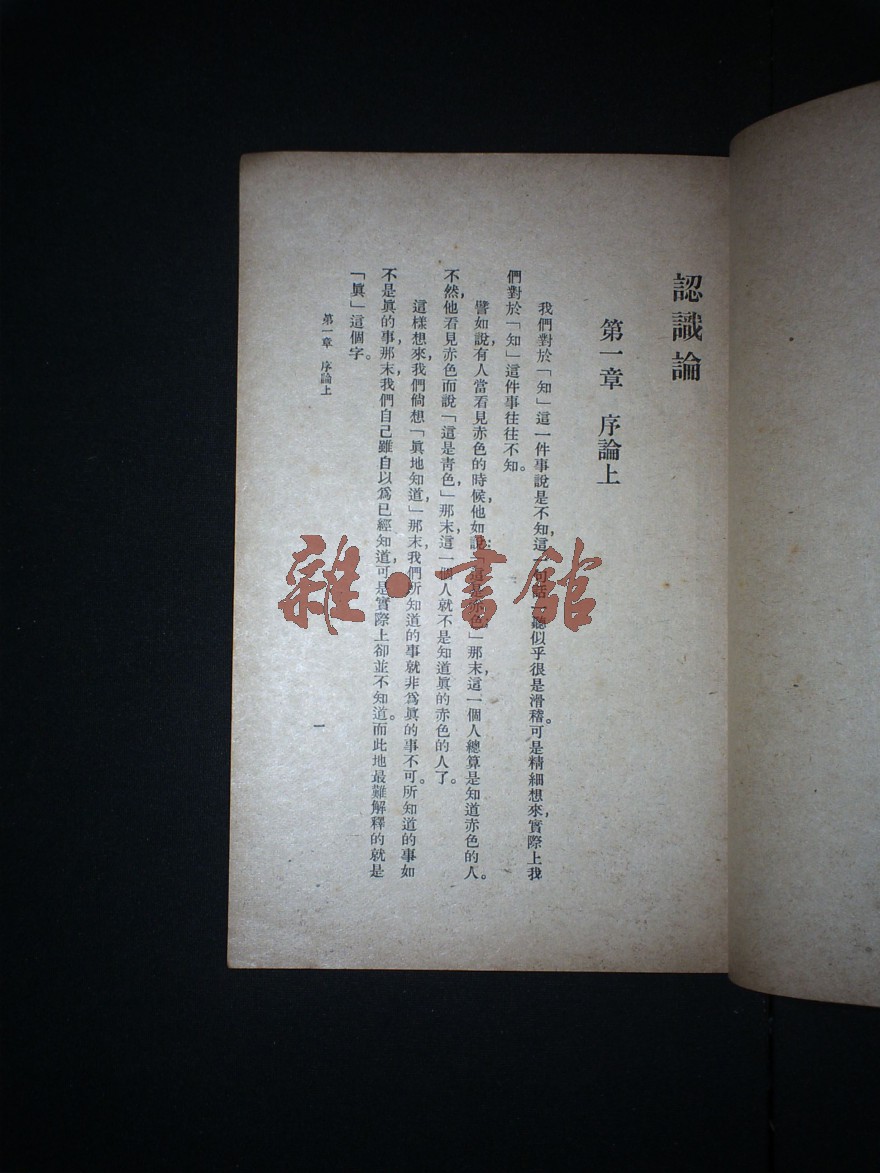 認識論
第一章 序論上
我們對於「知」這一件事說是不知,這一句話一聽似乎很是滑稽。可是精細想來,實際上我
們對於「知」這件事往往不知。
譬如說,有人當看見赤色的時候,他如說:「這是赤色」那末,這一個人總算是知道赤色的人。
不然,他看見赤色而說「這是青色,」那末,這一個人就不是知道眞的赤色的人了。
這樣想來,我們倘想「眞地知道,」那末,我們所知道的事就非爲眞的事不可。所知道的事如
不是眞的事,那末,我們自己雖自以爲已經知道,可是實際上卻並不知道。而此地最難解釋的就是
「眞」這個字。
第一章 序論上
一
雜·書館